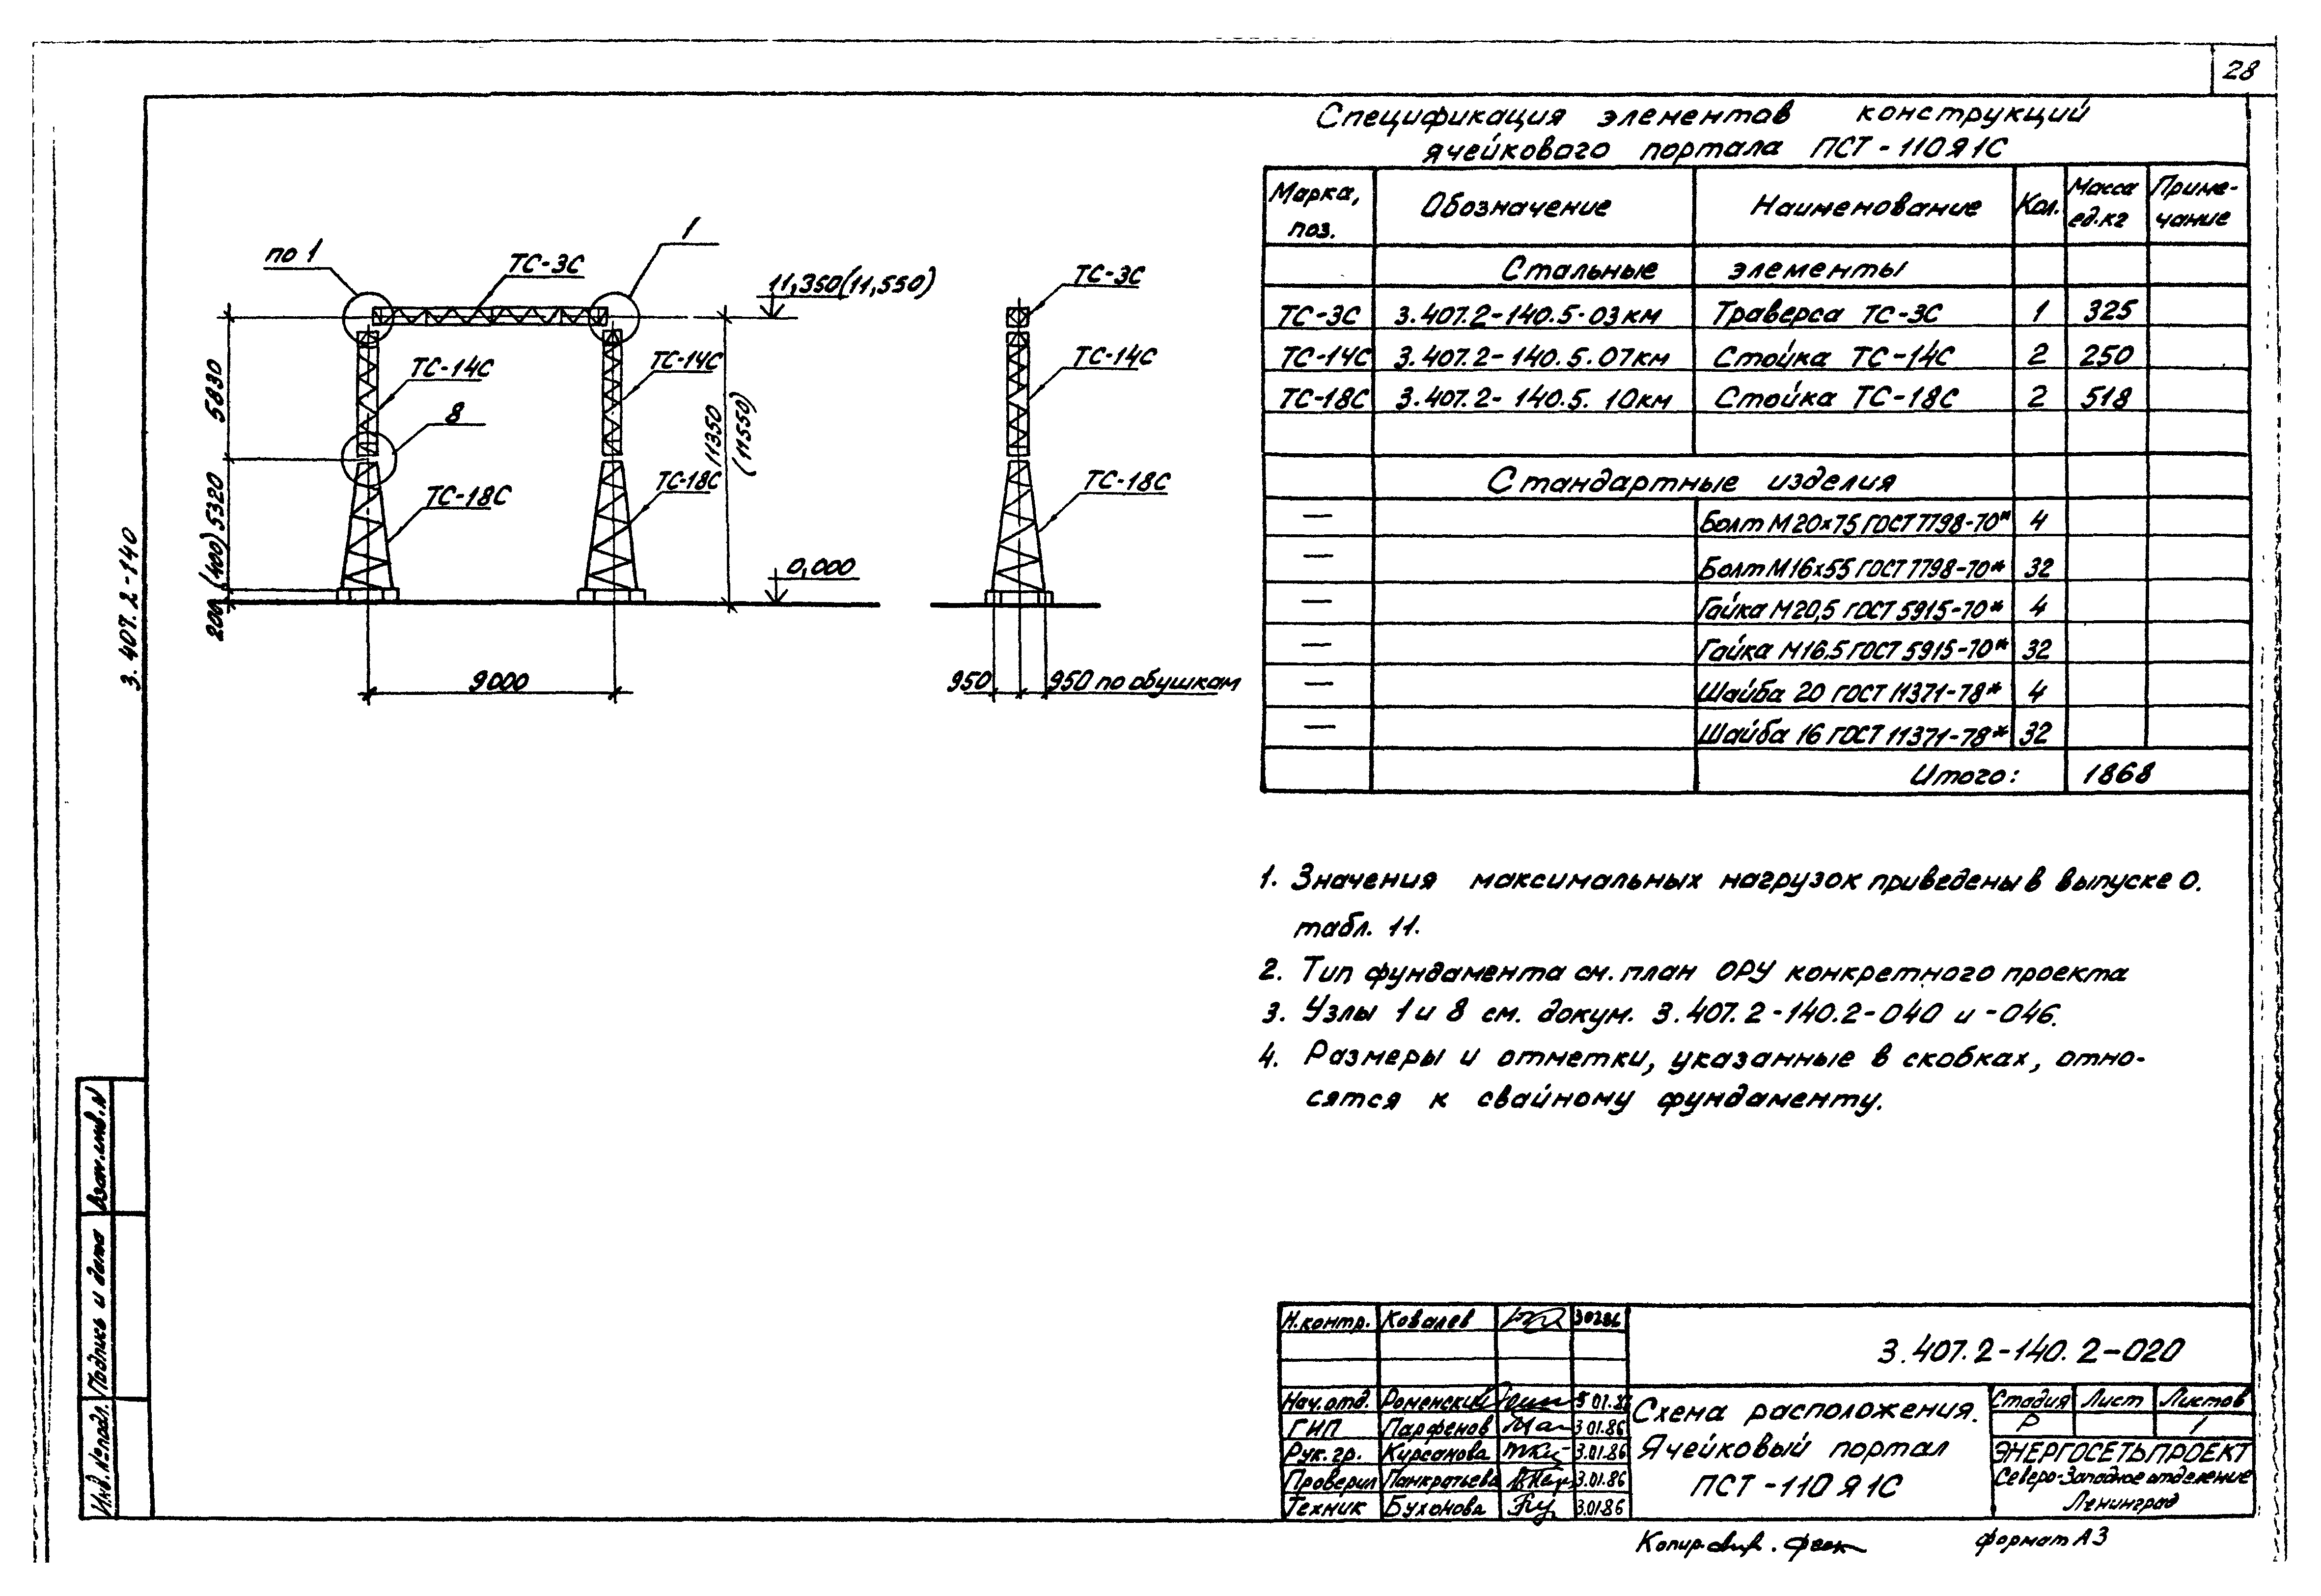 28
Спецификация элементов конструкций
ячейкового портала ПСТ-110Я1С
Марка, поз. Обозначение Наименование Кол. Масса ед.кг Приме-чание
Стальные элементы
ТС-3С 3.407.2-140.5-03км Траверса ТС-3С 1 325
ТС-14С 3.407.2-140.5.07км Стойка ТС-14С 2 250
ТС-18С 3.407.2-140.5.10км Стойка ТС-18С 2 518
Стандартные изделия
— Болт М20х75 ГОСТ 7798-70* 4
— Болт М16х55 ГОСТ 7798-70* 32
— Гайка М20,5 ГОСТ 5915-70* 4
— Гайка М16,5 ГОСТ 5915-70* 32
— Шайба 20 ГОСТ 11371-78* 4
— Шайба 16 ГОСТ 11371-78* 32
Итого: 1868
по 1
ТС-3С
1
11,350(11,550)
ТС-14С
ТС-14С
8
ТС-18С
ТС-18С
5830
5320
200(400)
11350
(11550)
0,000
9000
ТС-3С
ТС-14С
ТС-18С
950
950 по обушкам
3.407.2-140
1. Значения максимальных нагрузок приведены в выпуске 0.
табл. 11.
2. Тип фундамента см. план ОРУ конкретного проекта
3. Узлы 1 и 8 см. докум. 3.407.2-140.2-040 и -046.
4. Размеры и отметки, указанные в скобках, отно-
сятся к свайному фундаменту.
Взам.инв.N
Подпись и дата
Инв.№подл.
Н.контр. Ковалев
3.407.2-140.2-020
Нач.отд. Роменский
ГИП Парфенов 3.01.86
Рук.гр. Кирсанова 3.01.86
Проверил Панкратьева 3.01.86
Техник Буханова 3.01.86
Схема расположения.
Ячейковый портал
ПСТ-110Я1С
Стадия Лист Листов
Р 1
ЭНЕРГОСЕТЬПРОЕКТ
Северо-Западное отделение
Ленинград
Копир.
формат А3